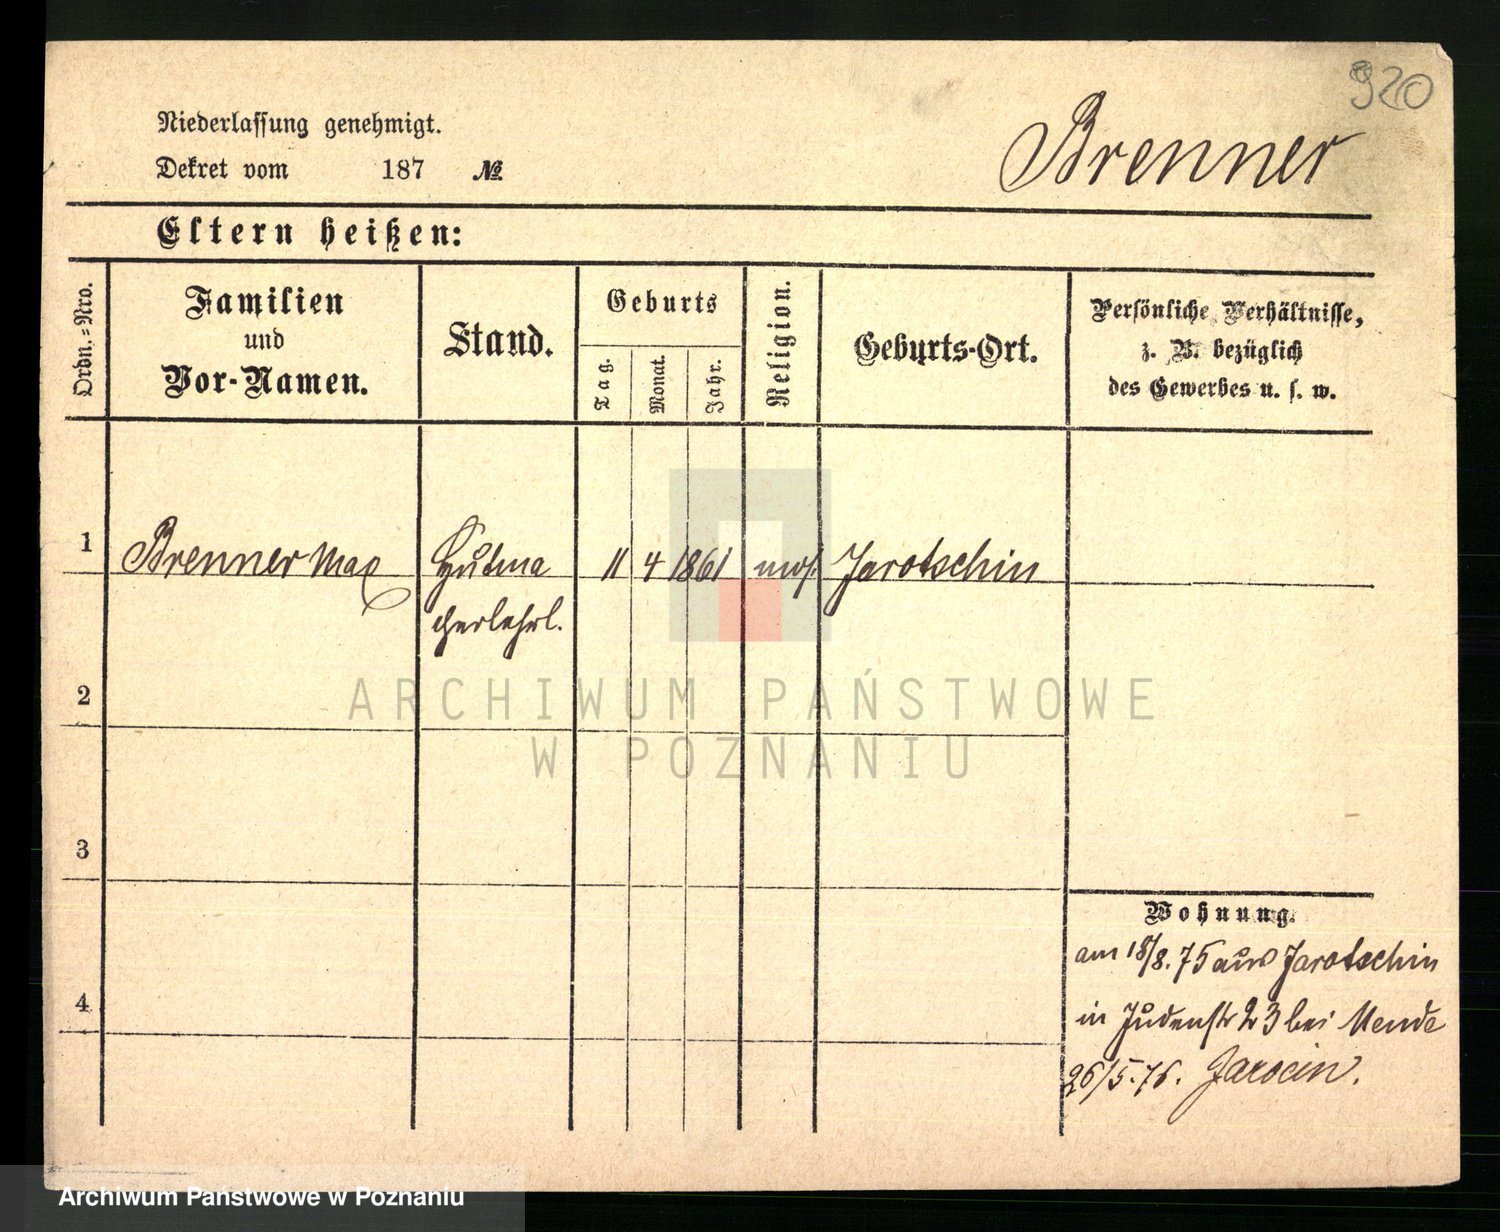 920
Niederlassung genehmigt.
Brenner
Dekret vom 187 №
Eltern heißen:
Ordn.-Nro.
Familien
und
Vor-Namen.
Stand.
Geburts
Tag.
Monat.
Jahr.
Religion.
Geburts-Ort.
Persönliche Verhältnisse,
z. B. bezüglich
des Gewerbes u. s. w.
1 Brenner Max Hutma 11 4 1861 mos. Jarotschin
cherlehrl.
2
3
4
Wohnung.
am 18/8. 75 aus Jarotschin
in Judenstr 23 bei Mende
26/5. 76. Jarocin.
ARCHIWUM PAŃSTWOWE
W POZNANIU
Archiwum Państwowe w Poznaniu